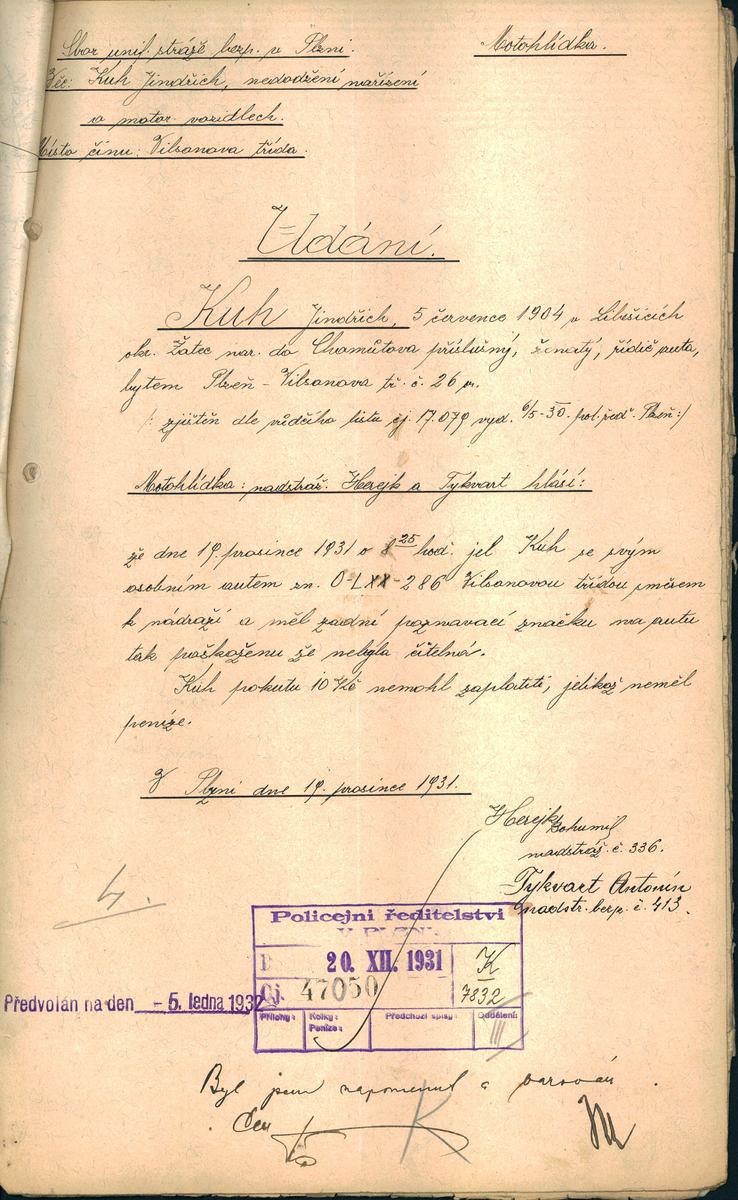 Sbor unif. stráže bezp. v Plzni.
Motohlídka.
Věc: Kuh Jindřich, nedodržení nařízení
o motor. vozidlech.
Místo činu: Vilsonova třída.
Udání.
Kuh Jindřich, 5 července 1904 v Liběšicích
okr. Žatec nar. do Chomůtova příslušný, ženatý, řidič auta,
bytem Plzeň - Vilsonova tř. č. 26
/: zjištěn dle vůdčího listu čj. 17.079 vyd. 6/5-30. pol. řed. Plzeň :/
Motohlídka: nadstráž. Herejk a Tykvart hlásí:
že dne 19. prosince 1931 o 8 25 hod. jel Kuh se svým
osobním autem zn. O-LXX-286 Vilsonovou třídou směrem
k nádraží a měl zadní poznavací značku na autu
tak poškoženu že nebyla čitelná.
Kuh pokutu 10 Kč nemohl zaplatiti, jelikož neměl
peníze.
V Plzni dne 19. prosince 1931.
Herejk Bohumil
nadstráž. č. 336.
Tykvart Antonín
nadstr. bezp. č. 413.
4.
Policejní ředitelství
V PLZNI.
20. XII. 1931
K
Čj. 47050
7832
Předvolán na den - 5. ledna 1932
Přílohy:
Kolky:
Peníze:
Předchozí spisy:
Oddělení:
III
Byl jsem napomenut a varován.
K